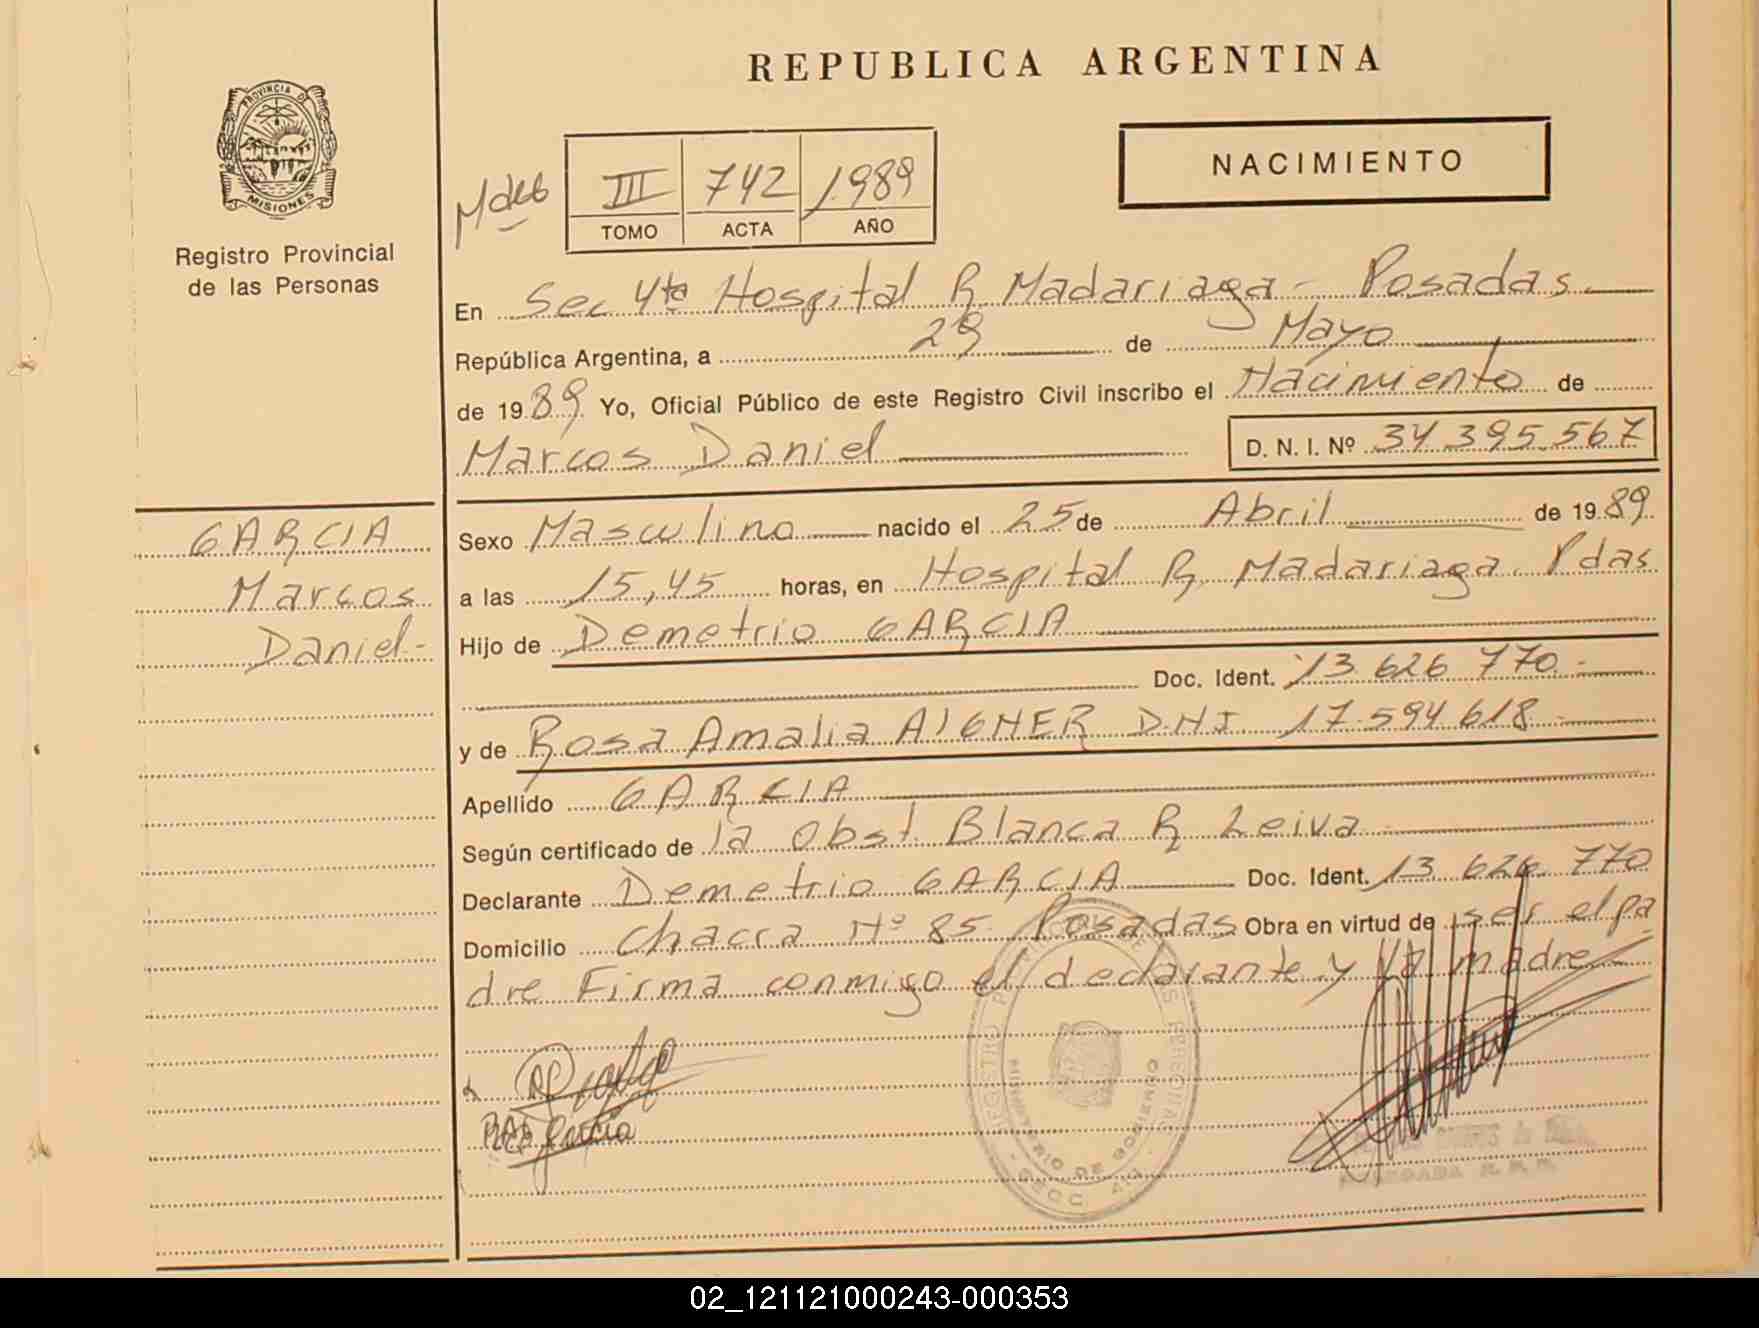 REPUBLICA ARGENTINA
PROVINCIA DE
MISIONES
Registro Provincial
de las Personas
III 742 1989
TOMO ACTA AÑO
NACIMIENTO
En Sec 4ta Hospital R. Madariaga - Posadas.
República Argentina, a 29 de Mayo
de 1989 Yo, Oficial Público de este Registro Civil inscribo el Nacimiento de
Marcos Daniel D. N. I. Nº 34.395.567
GARCIA
Marcos
Daniel-
Sexo Masculino nacido el 25 de Abril de 1989
a las 15,45 horas, en Hospital R. Madariaga. Pdas
Hijo de Demetrio GARCIA
Doc. Ident. 13 626 770.-
y de Rosa Amalia AIGNER D.N.I. 17.594.618-
Apellido GARCIA
Según certificado de la Obst. Blanca R Leiva
Declarante Demetrio GARCIA Doc. Ident. 13 626 770
Domicilio Chacra Nº 85. Posadas Obra en virtud de ser el pa
dre Firma conmigo el declarante y la madre-
MINISTERIO DE GOBIERNO
02_121121000243-000353